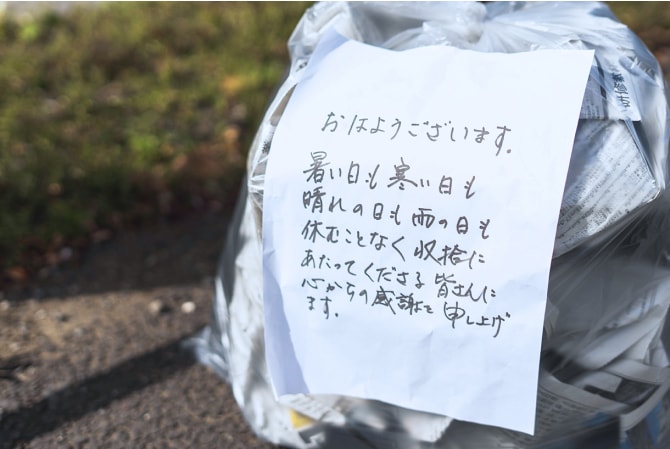 おはようございます。
暑い日も寒い日も
晴れの日も雨の日も
休むことなく収拾に
あたってくださる皆さんに
心からの感謝を申し上げ
ます。